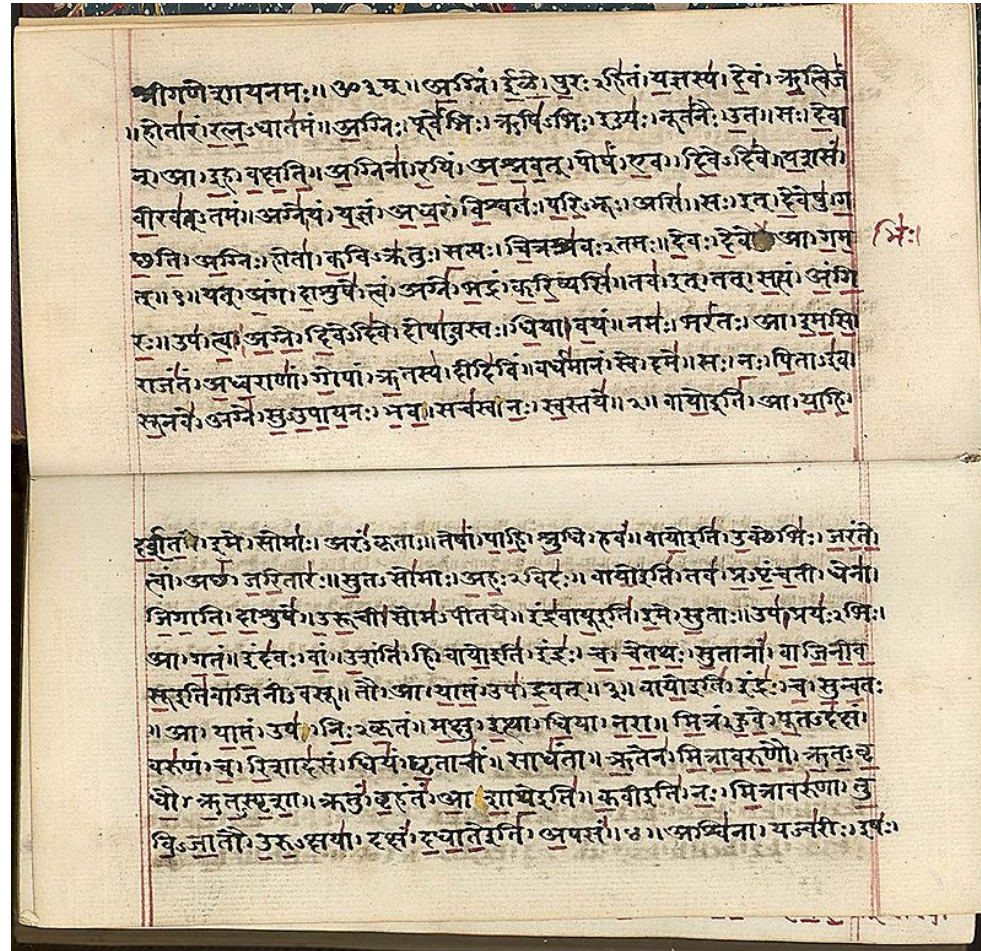 श्रीगणेशायनमः॥ॐ३म्॥अ॒ग्निं।ई॒ळे॒।पु॒रःऽहि॑तं।य॒ज्ञस्य॑।दे॒वं।ऋ॒त्विजं॑
॥होता॑रं।र॒त्न॒ऽधात॑मं॥अ॒ग्निः।पूर्वे॑भिः।ऋषि॑ऽभिः।ईड्यः॑।नूत॑नैः।उ॒त॥सः।दे॒वा
न्।आ।इ॒ह।व॒क्ष॒ति॒॥अ॒ग्निना॑।र॒यिं।अ॒श्न॒व॒त्।पोषं॑।ए॒व।दि॒वेऽदि॑वे॥य॒शसं॑।
वी॒रव॑त्ऽतमं॥अग्ने॑।यं।य॒ज्ञं।अ॒ध्व॒रं।वि॒श्वतः॑।प॒रि॒ऽभूः।असि॑॥सः।इत्।दे॒वेषु॑।ग॒
च्छ॒ति॒।अ॒ग्निः।होता॑।क॒विऽक्र॑तुः।स॒त्यः।चि॒त्रश्र॑वःऽतमः॥दे॒वः।दे॒वे।आ।ग॒म॒
भिः॑।
त्॥१॥यत्।अं॒ग।दा॒शुषे॑।त्वं।अग्ने॑।भ॒द्रं।क॒रि॒ष्यसि॑॥तव॑।इत्।तत्।स॒त्यं।अं॒गि॒
रः॒॥उप॑।त्वा॒।अ॒ग्ने॒।दि॒वेऽदि॑वे।दोषा॑ऽवस्तः।धि॒या।व॒यं॥नमः॑।भर॑तः।आ।इ॒म॒सि॒
राज॑तं।अ॒ध्व॒राणां॑।गो॒पां।ऋ॒तस्य॑।दीदि॑विं॥वर्ध॑मानं।स्वे।दमे॑॥सः।नः॒।पि॒ताऽइ॑व।
सू॒नवे॑।अग्ने॑।सु॒ऽउ॒पा॒य॒नः।भ॒व॒॥सच॑स्व।नः॒।स्व॒स्तये॑॥२॥वायो॒इति॑।आ।या॒हि॒
इ॒मे।सोमाः॑।अरं॑ऽकृताः॥तेषां॑।पा॒हि॒।श्रु॒धि।हवं॑॥वायो॒इति॑।उ॒क्थेभिः॑।ज॒रं॒ते॒
त्वां।अच्छ॑।ज॒रि॒तारः॑॥सु॒तऽसो॑माः।अ॒हः॒ऽविदः॑॥वायो॒इति॑।तव॑।प्र॒ऽपृं॒च॒ती।धेना॑।
जि॒गा॒ति॒।दा॒शुषे॑॥उ॒रू॒ची।सोम॑ऽपीतये॥इंद्र॑वायू॒इति॑।इ॒मे।सु॒ताः॥उप॑।प्रयः॑ऽभिः।
आ।ग॒तं॒॥इंद॑वः।वां॒।उ॒शंति॑।हि॥वायो॒इति॑।इंद्रः॑।च॒।चे॒त॒थः॒।सु॒तानां॑।वा॒जि॒नी॒व॒
सू॒इति॑वाजिनीऽवसू॥तौ।आ।या॒तं॒।उप॑।द्र॒वत्॥३॥वायो॒इति॑।इंद्रः॑।च॒।सु॒न्व॒तः
।आ।या॒तं॒।उप॑।निः॒ऽकृ॒तं॥म॒क्षु।इ॒त्था।धि॒या।न॒रा॒॥मि॒त्रं।हु॒वे॒।पू॒तऽद॑क्षं।
वरु॑णं।च॒।रि॒शाद॑सं।धियं॑।घृ॒ताचीं॑।साधं॑ता॥ऋ॒तेन॑।मि॒त्रा॒व॒रु॒णौ॒।ऋ॒त॒ऽवृ॒
धौ॒।ऋ॒त॒ऽस्पृ॒शा॒॥क्रतुं॑।बृ॒हंतं॑।आ॒शा॒थे॒इति॑॥क॒वीइति॑।नः॒।मि॒त्रावरु॑णा।तु॒
वि॒ऽजा॒तौ।उ॒रु॒ऽक्षया॑।दक्षं॑।द॒धा॒ते॒इति॑।अ॒पसं॑॥४॥अश्वि॑ना।यज्व॑रीः।इषः॑।